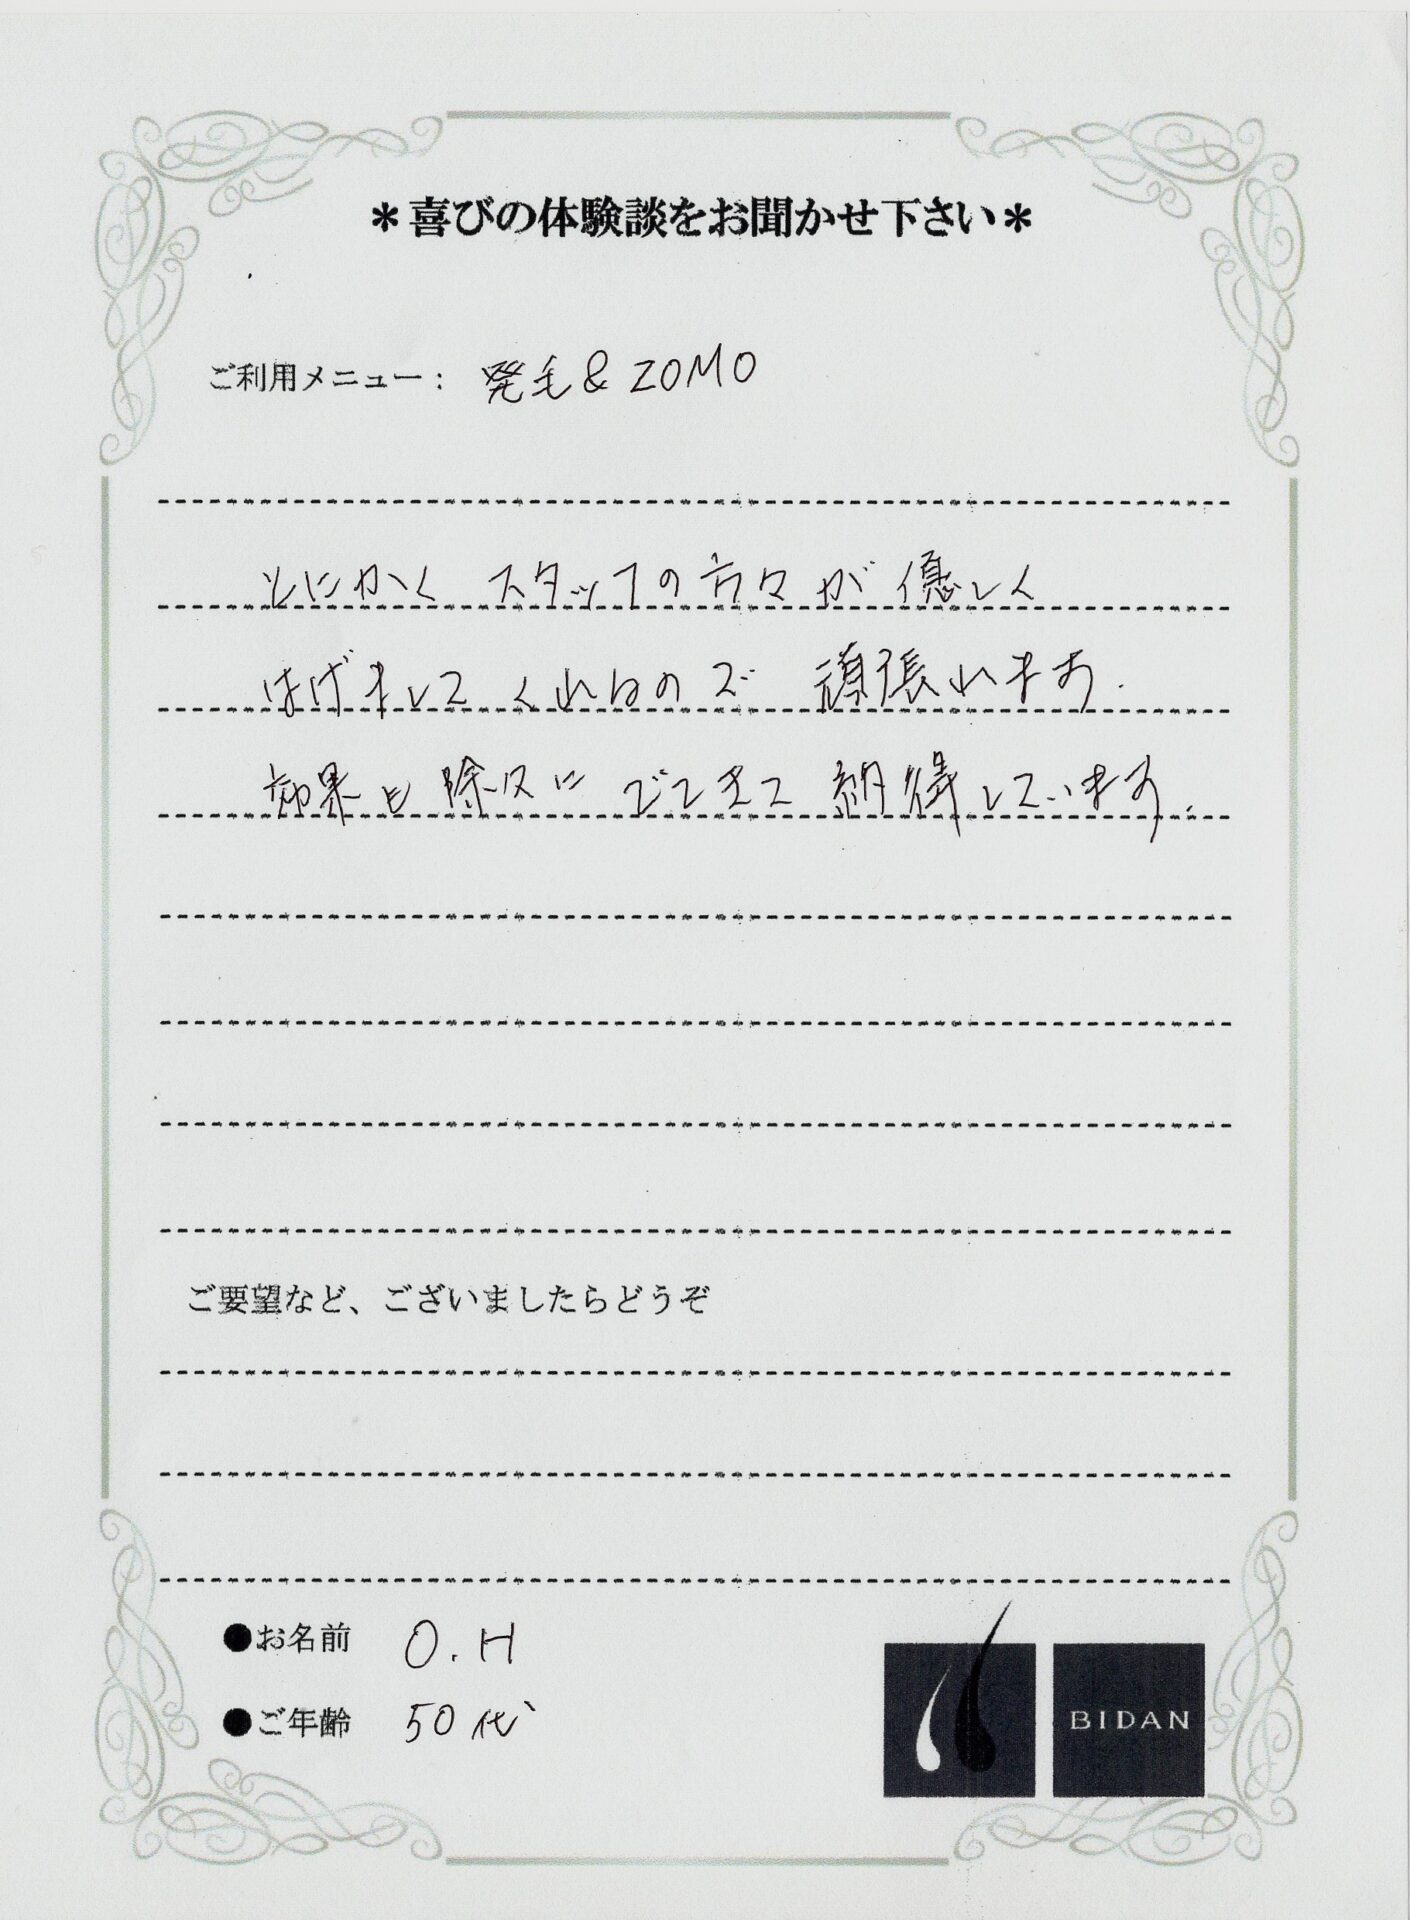 ＊喜びの体験談をお聞かせ下さい＊
ご利用メニュー： 発毛＆ZOMO
とにかく スタッフの方々が優しく
はげましてくれるので 頑張れます.
効果も除々に でてきて 納得しています.
ご要望など、ございましたらどうぞ
●お名前 O.H
●ご年齢 50代
BIDAN